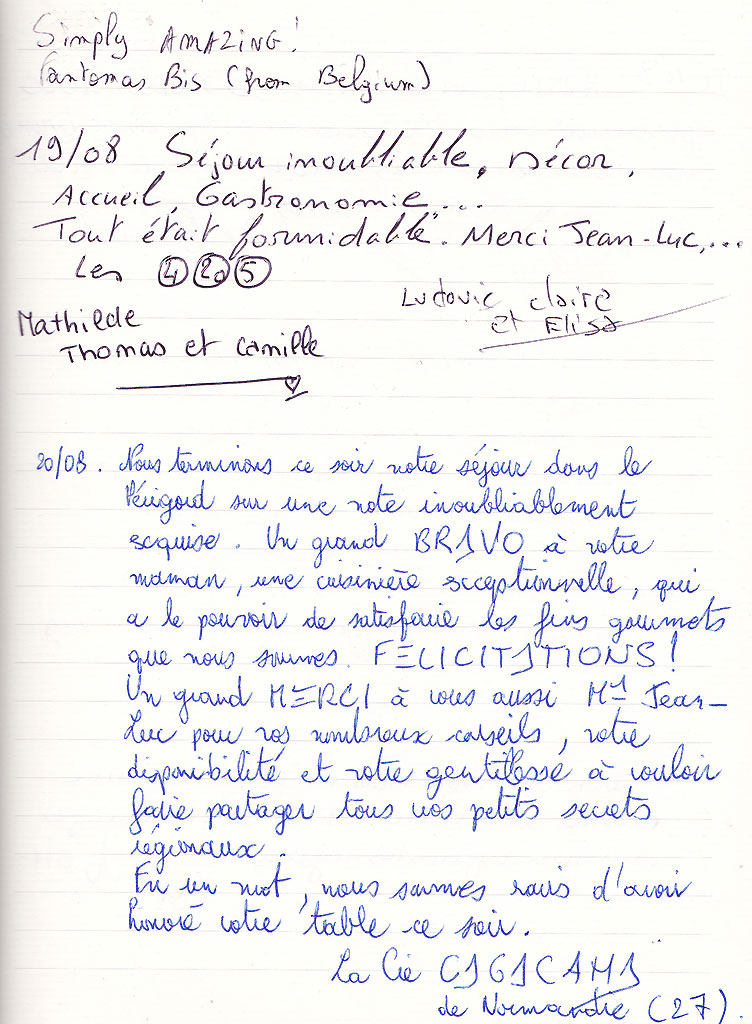 Simply AMAZING!
Fantomas Bis (from Belgium)
19/08 Séjour inoubliable, Décor,
Accueil, Gastronomie...
Tout était formidable. Merci Jean-Luc,...
Les 4 20 5
Ludovic claire
et Elisa
Mathilde
Thomas et Camille
20/08. Nous terminons ce soir notre séjour dans le
Périgord sur une note inoubliablement
exquise. Un grand BRAVO à votre
maman, une cuisinière exceptionnelle, qui
a le pouvoir de satisfaire les fins gourmets
que nous sommes. FELICITATIONS!
Un grand MERCI à vous aussi Jean-
Luc pour vos nombreux conseils, votre
disponibilité et votre gentillesse à vouloir
faire partager tous vos petits secrets
régionaux.
En un mot, nous sommes ravis d'avoir
honoré votre table ce soir.
La Cie
de Normandie (27).